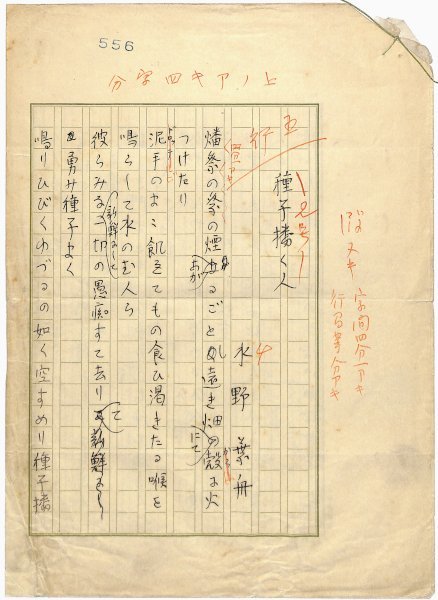 556
上ノアキ四字分
字間四分アキ
五行
種子播く人
水野葉舟
燔祭の祭の煙あがるごとし遠き畑にて殻に火
つけたり
泥手のまゝ飢ゑてもの食ひ渇きたる喉を
鳴らして水のむ人ら
彼らみな新鮮にして一切の愚痴すて去りて
勇み種子まく
鳴りひびくゆづるの如く空すめり種子播